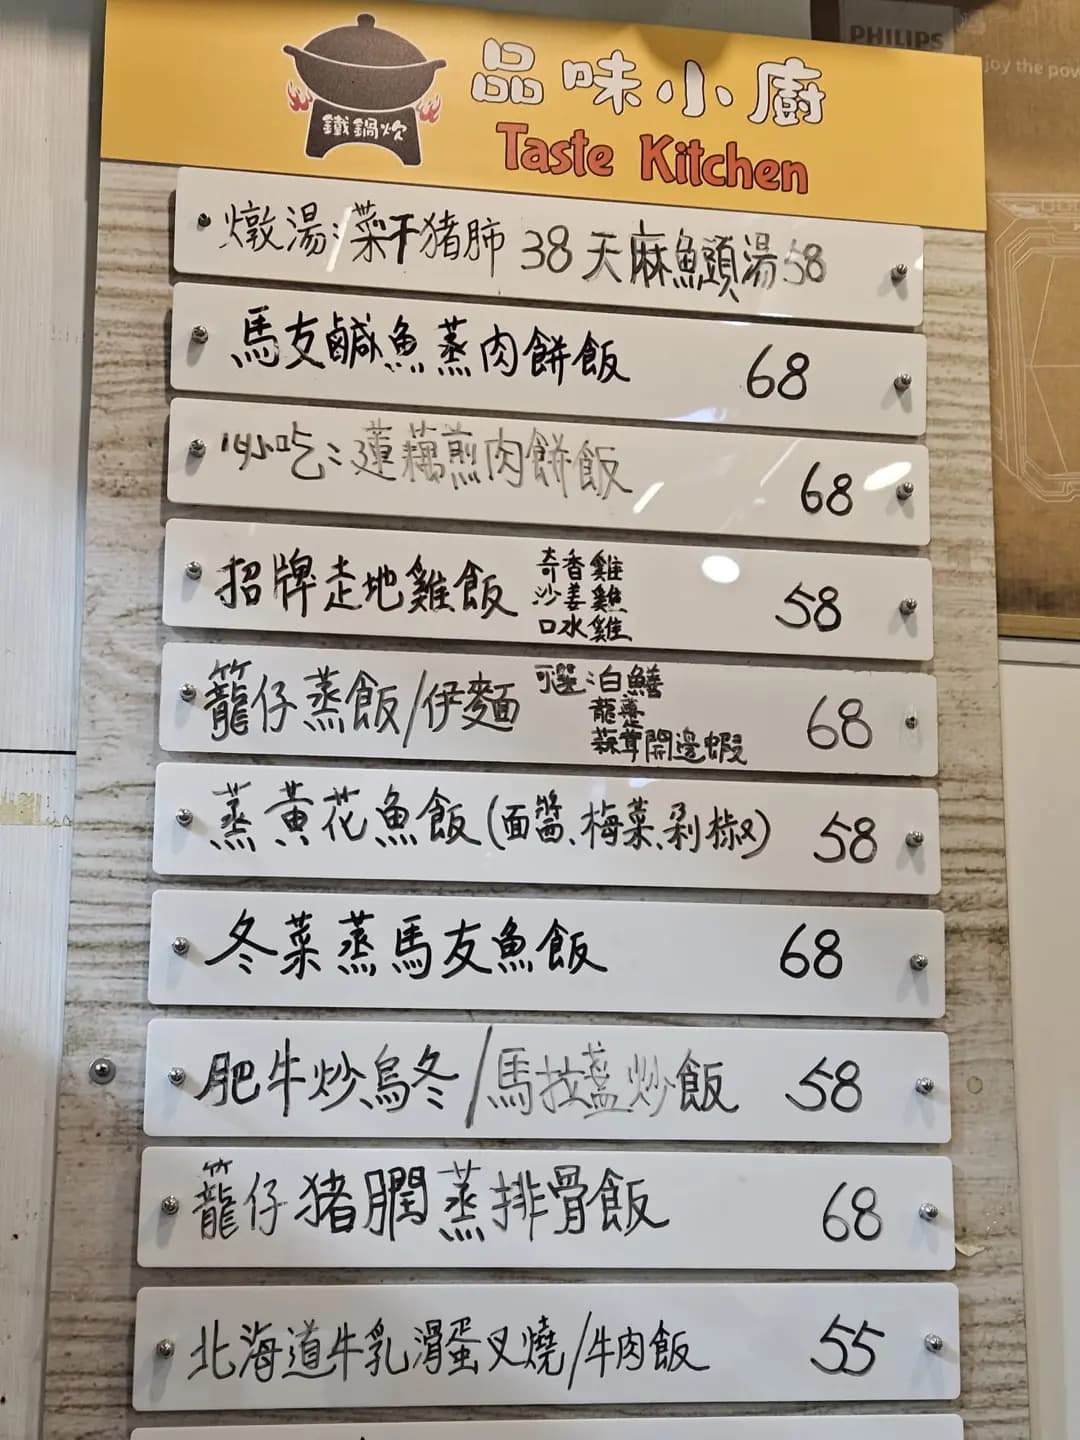 PHILIPS
joy the pow
鐵鍋炊
品味小廚
Taste Kitchen
燉湯:菜干豬肺 38 天麻魚頭湯 58
馬友鹹魚蒸肉餅飯 68
小吃:蓮藕煎肉餅飯 68
招牌走地雞飯 58
奇香雞
沙姜雞
口水雞
籠仔蒸飯/伊麵 68
可選:白鱔
龍躉
蒜茸開邊蝦
蒸黃花魚飯(面醬、梅菜、剁椒) 58
冬菜蒸馬友魚飯 68
肥牛炒烏冬/馬拉盞炒飯 58
籠仔豬膶蒸排骨飯 68
北海道牛乳滑蛋叉燒/牛肉飯 55